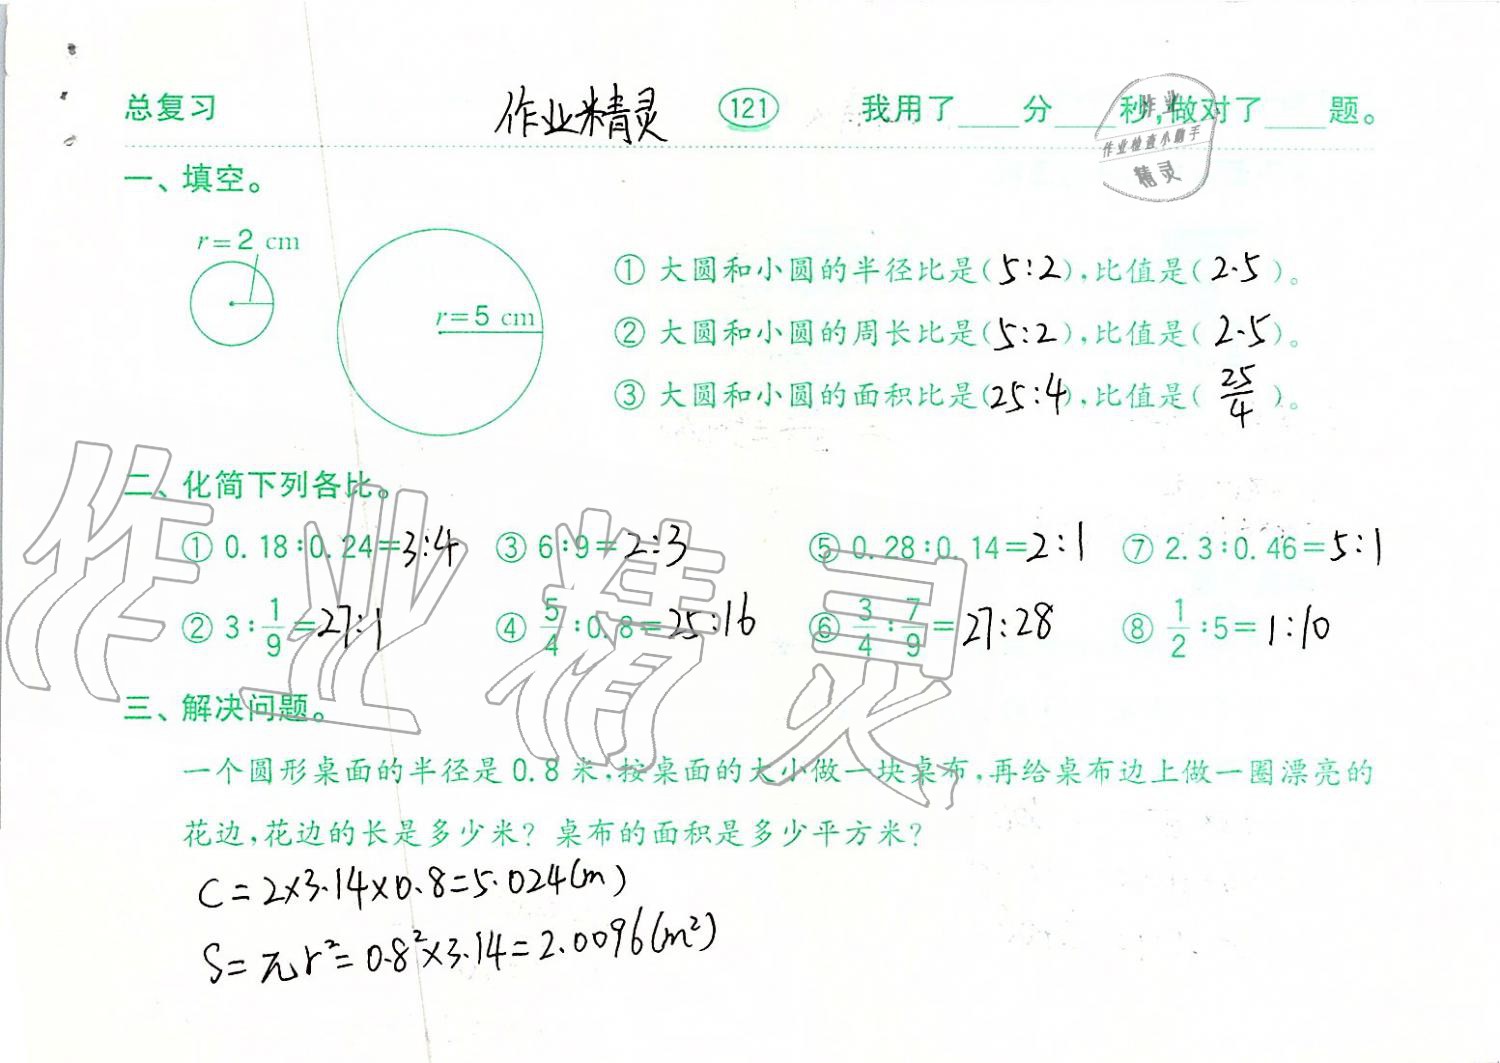 总复习 作业精灵 121 我用了____分____秒,做对了____题。
作业
作业检查小助手
精灵
一、填空。
r=2 cm
r=5 cm
① 大圆和小圆的半径比是(5:2),比值是(2.5)。
② 大圆和小圆的周长比是(5:2),比值是(2.5)。
③ 大圆和小圆的面积比是(25:4),比值是(25/4)。
二、化简下列各比。
① 0.18:0.24=3:4 ③ 6:9=2:3 ⑤ 0.28:0.14=2:1 ⑦ 2.3:0.46=5:1
② 3:1/9=27:1 ④ 5/4:0.8=25:16 ⑥ 3/4:7/9=27:28 ⑧ 1/2:5=1:10
作业精灵
三、解决问题。
一个圆形桌面的半径是0.8米,按桌面的大小做一块桌布,再给桌布边上做一圈漂亮的
花边,花边的长是多少米? 桌布的面积是多少平方米?
C=2×3.14×0.8=5.024(m)
S=πr²=0.8²×3.14=2.0096(m²)